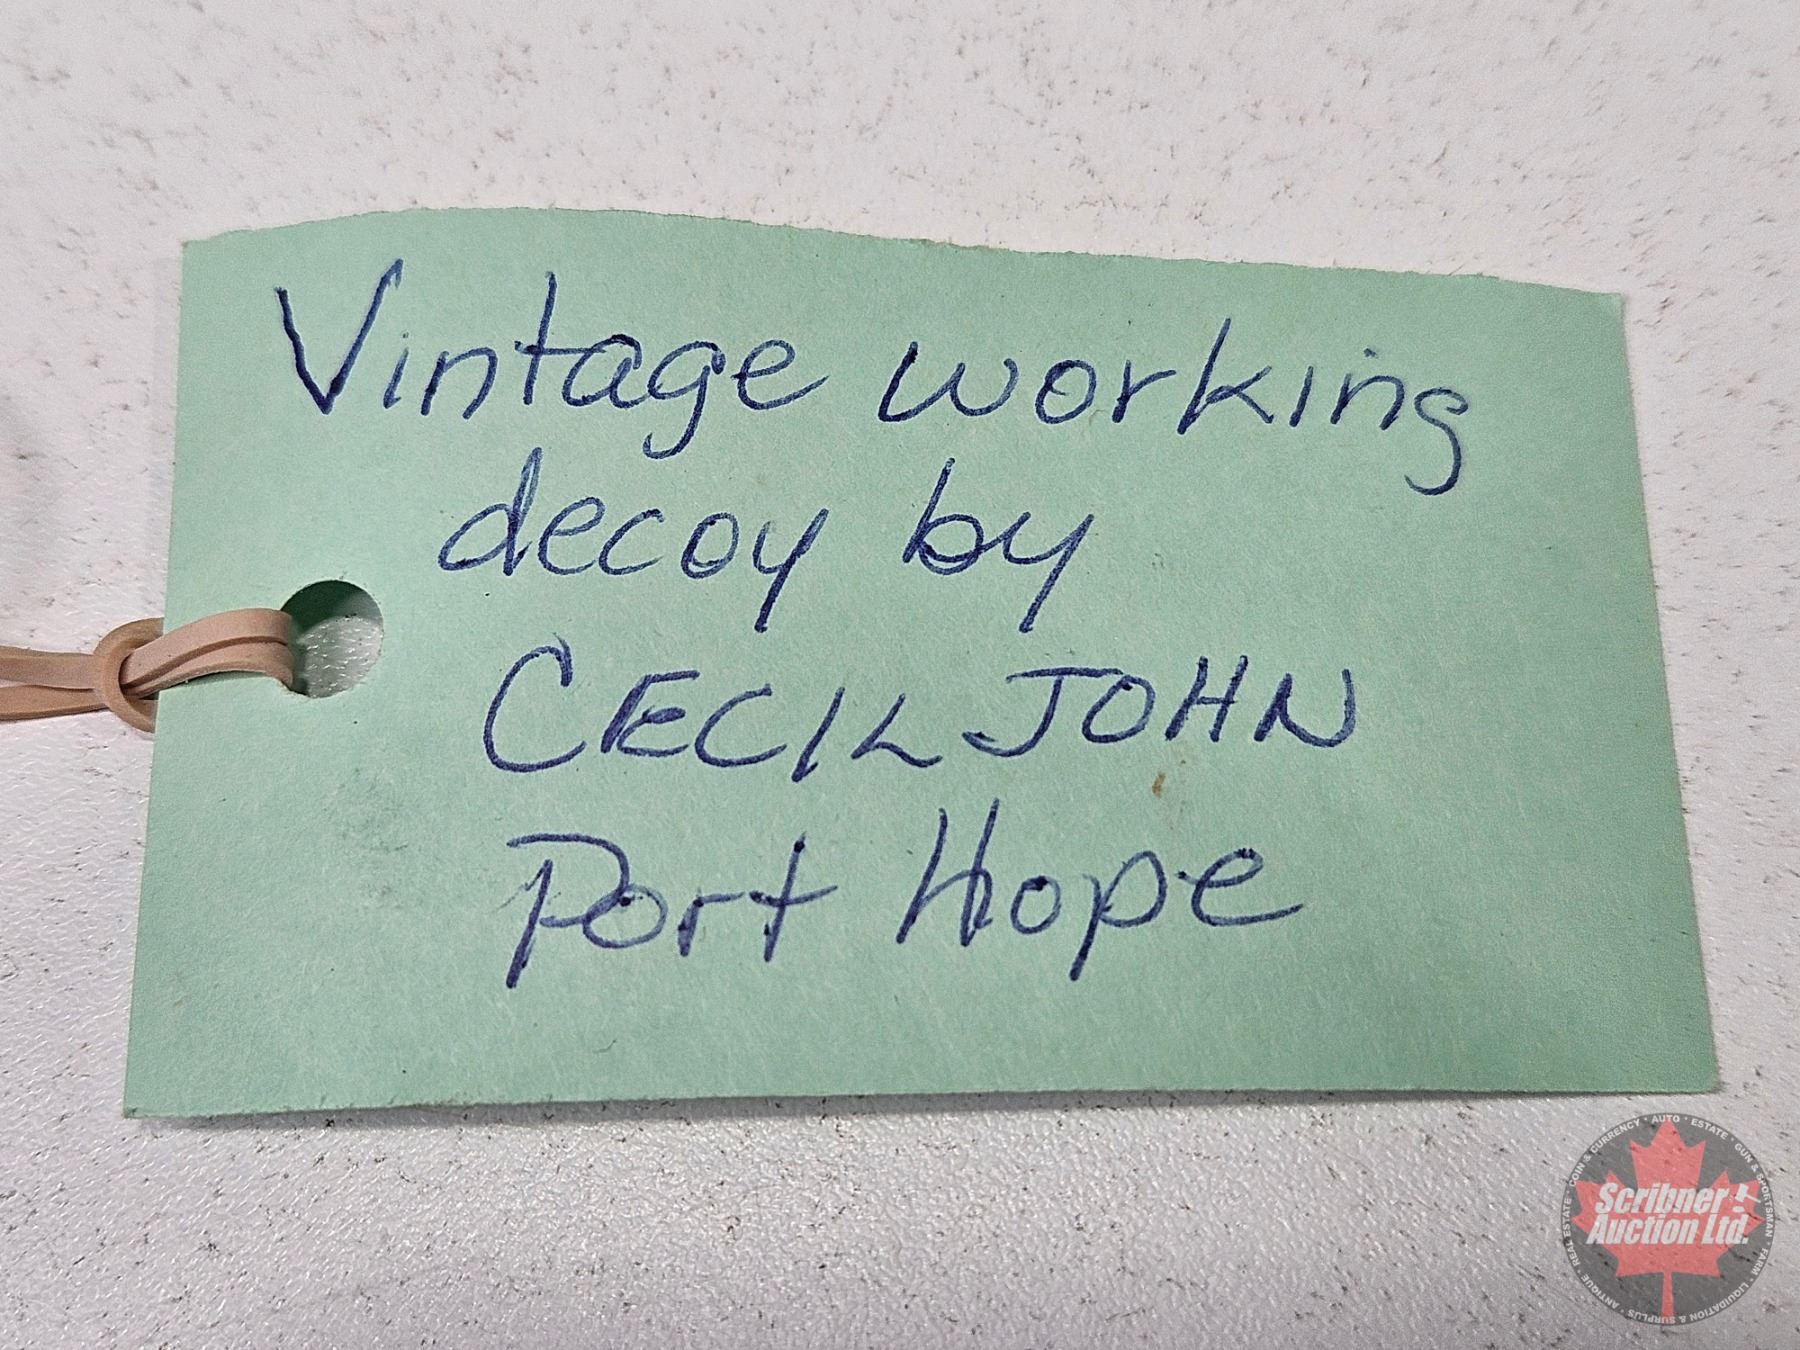 Vintage working
decoy by
CECIL JOHN
Port Hope
Scribner
Auction Ltd.
COIN & CURRENCY * AUTO * ESTATE * GUN & SPORTSMAN * FARM * LIQUIDATION & SURPLUS * ANTIQUE * REAL ESTATE *